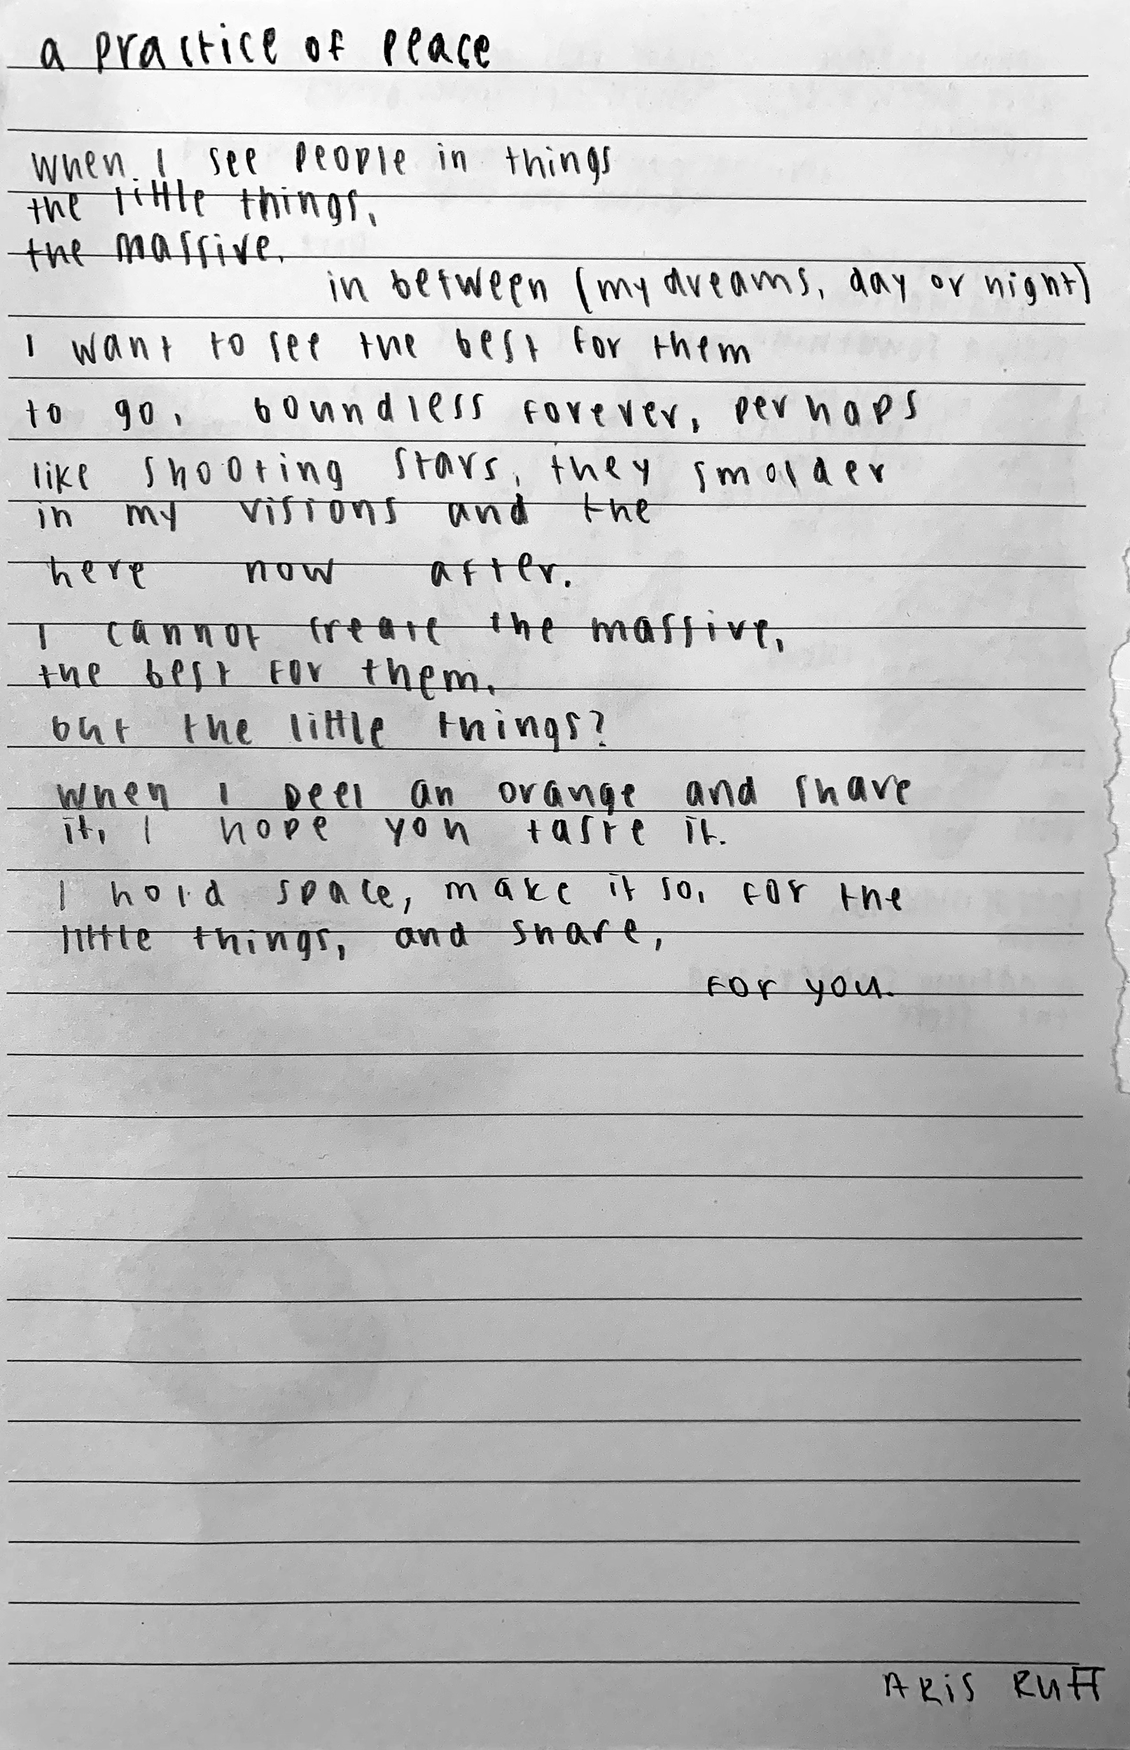 a practice of peace
when I see people in things
the little things,
the massive,
in between (my dreams, day or night)
I want to see the best for them
to go, boundless forever, perhaps
like shooting stars, they smolder
in my visions and the
here now after.
I cannot create the massive,
the best for them,
but the little things?
when I peel an orange and share
it, I hope you taste it.
I hold space, make it so, for the
little things, and share,
for you.
ARIS RUFF